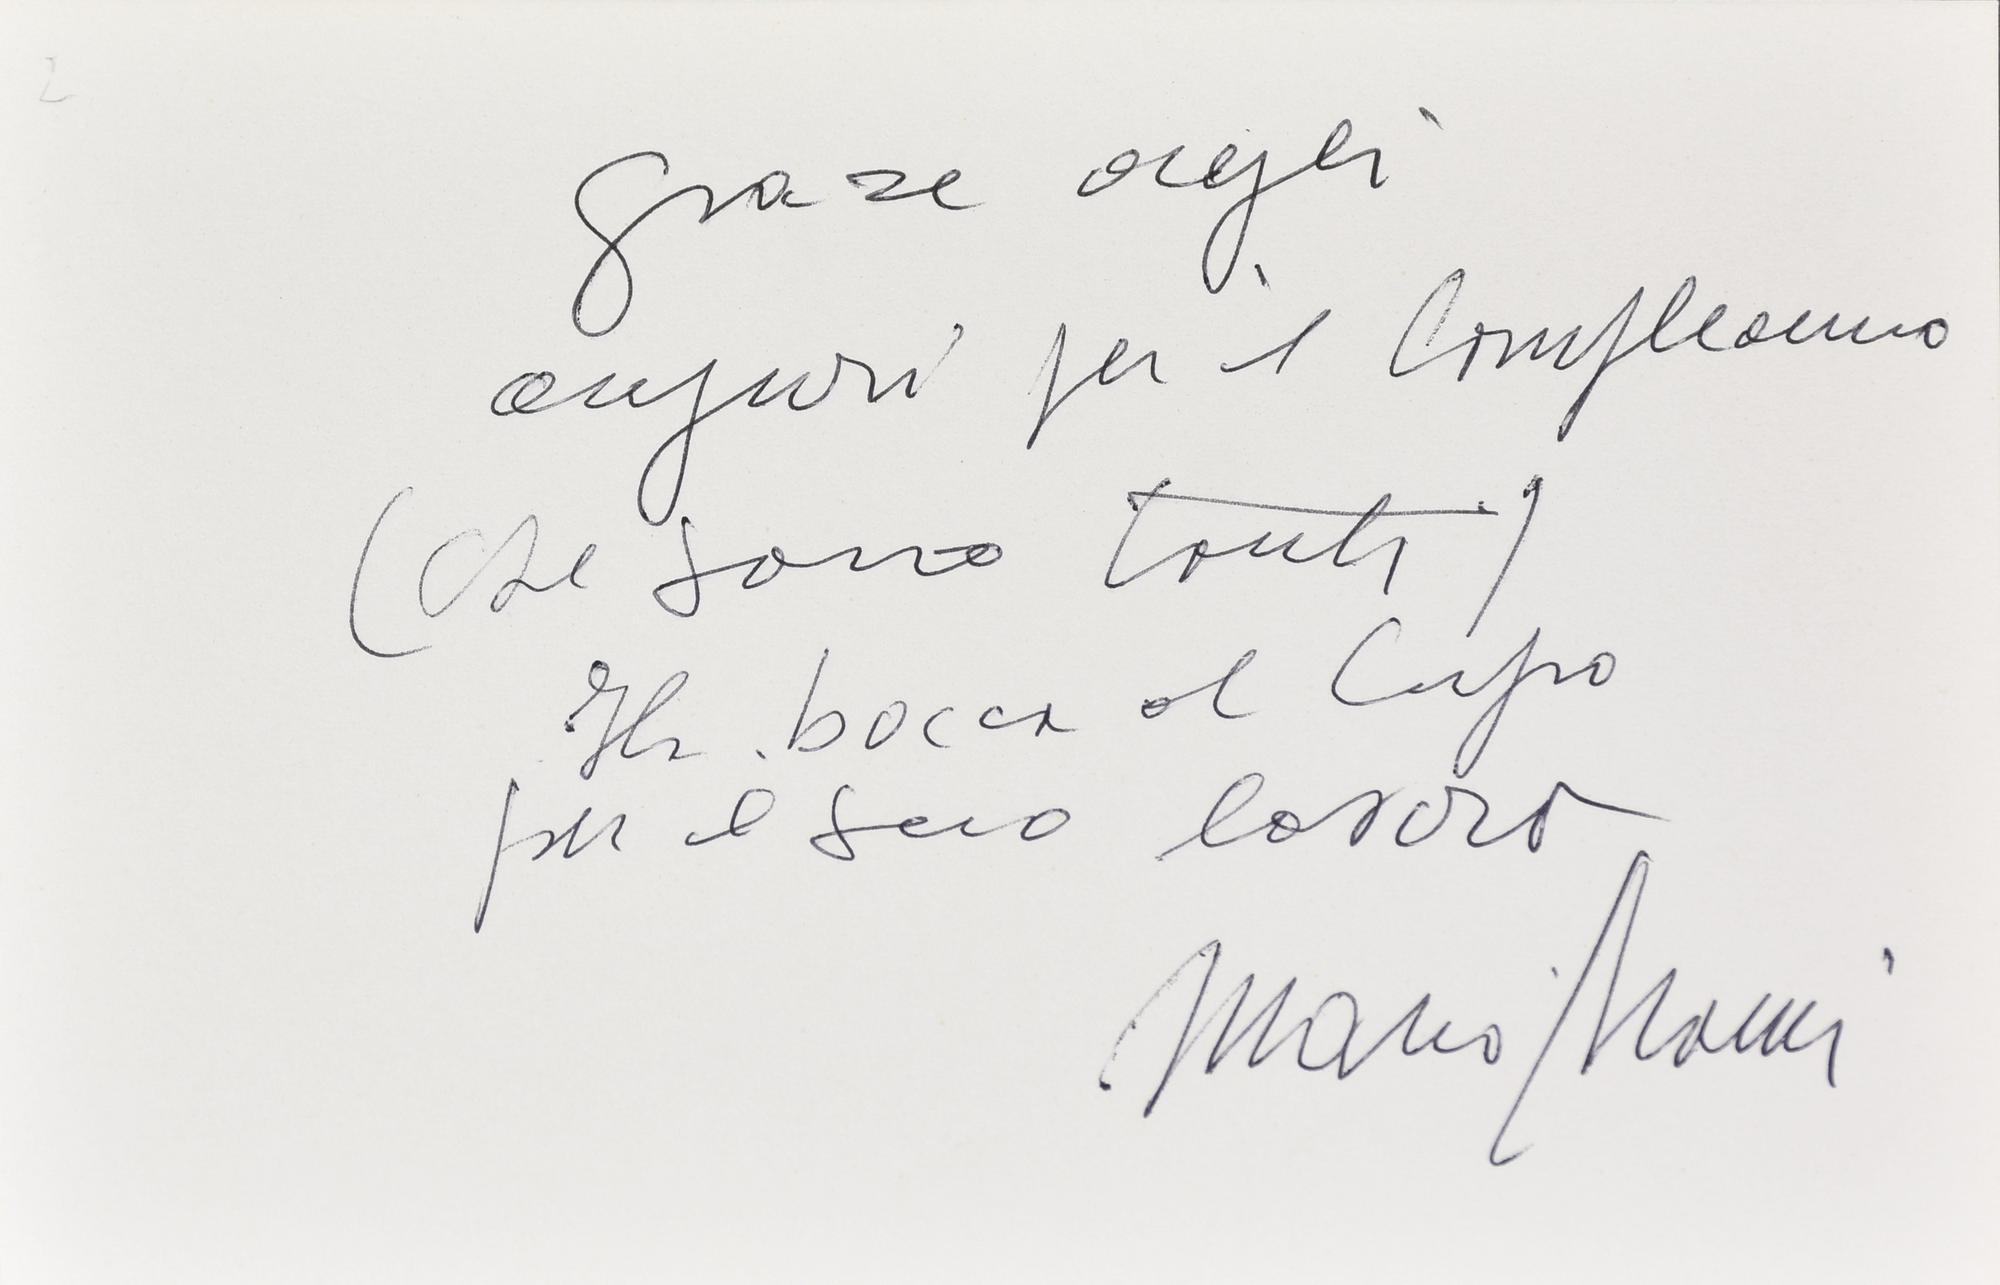 2
grazie
auguri per il Compleanno
(che sono tanti)
In bocca al Lupo
per il suo lavoro
Mario Nanni